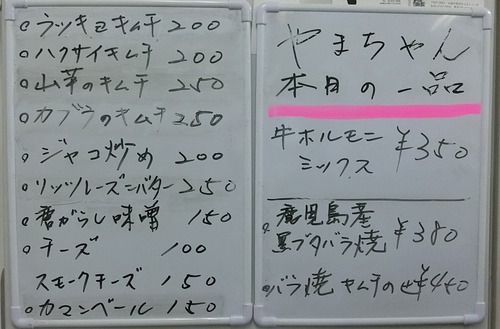 ○ラッキョキムチ 200
○ハクサイキムチ 200
○山芋のキムチ 250
○カブラのキムチ 250
○ジャコ炒め 200
○リッツレーズンバター 250
○唐がらし味噌 150
○チーズ 100
スモークチーズ 150
○カマンベール 150
やまちゃん
本日の一品
牛ホルモン
ミックス ¥350
○鹿児島産
黒ブタバラ焼 ¥380
○バラ焼キムチのせ ¥450